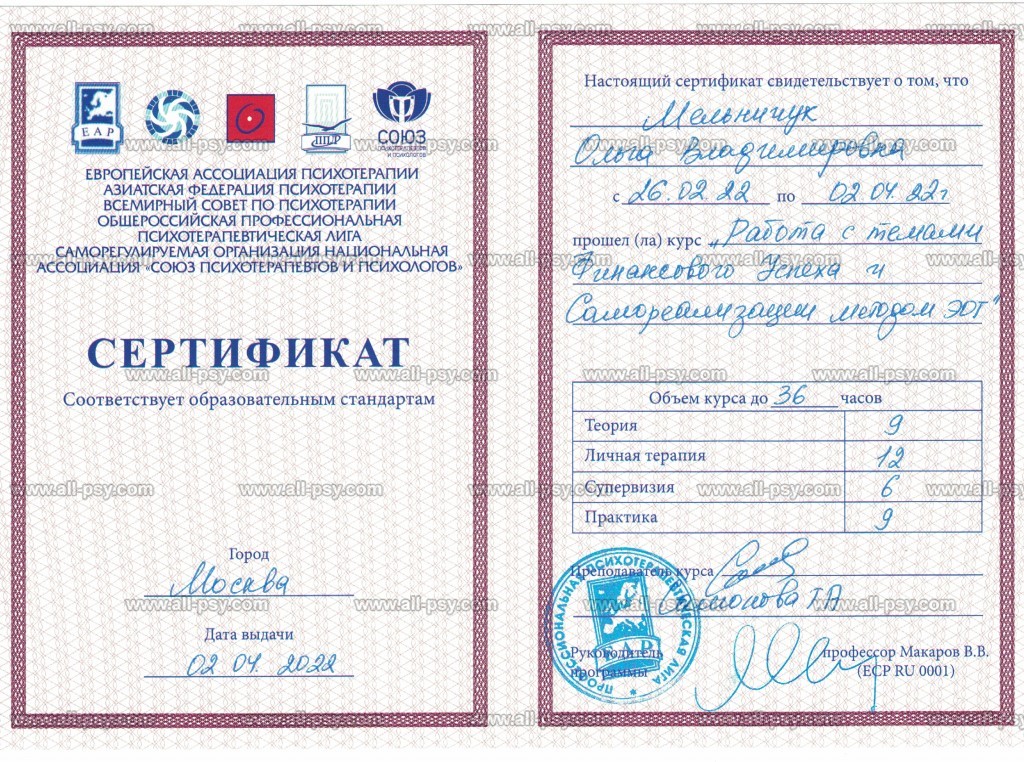 ЕАР
ППЛ
СОЮЗ
ПСИХОТЕРАПЕВТОВ
И ПСИХОЛОГОВ
ЕВРОПЕЙСКАЯ АССОЦИАЦИЯ ПСИХОТЕРАПИИ
АЗИАТСКАЯ ФЕДЕРАЦИЯ ПСИХОТЕРАПИИ
ВСЕМИРНЫЙ СОВЕТ ПО ПСИХОТЕРАПИИ
ОБЩЕРОССИЙСКАЯ ПРОФЕССИОНАЛЬНАЯ
ПСИХОТЕРАПЕВТИЧЕСКАЯ ЛИГА
САМОРЕГУЛИРУЕМАЯ ОРГАНИЗАЦИЯ НАЦИОНАЛЬНАЯ
АССОЦИАЦИЯ «СОЮЗ ПСИХОТЕРАПЕВТОВ И ПСИХОЛОГОВ»
СЕРТИФИКАТ
Соответствует образовательным стандартам
Город
Москва
Дата выдачи
02 04. 2022
Настоящий сертификат свидетельствует о том, что
Мельничук
Ольга Владимировна
с 26.02.22 по 02 04. 22г
прошел (ла) курс „Работа с темами
Финансового Успеха и
Самореализации методом ЭОТ"
Объем курса до 36 часов
Теория 9
Личная терапия 12
Супервизия 6
Практика 9
Преподаватель курса
Симонова ТА
Руководитель
программы
профессор Макаров В.В.
(ECP RU 0001)
ПРОФЕССИОНАЛЬНАЯ ПСИХОТЕРАПЕВТИЧЕСКАЯ ЛИГА
ЕАР
www.all-psy.com